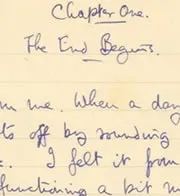 Chapter One.
The End Begins.
me. When a
off by sounding
I felt it from
functioning a bit